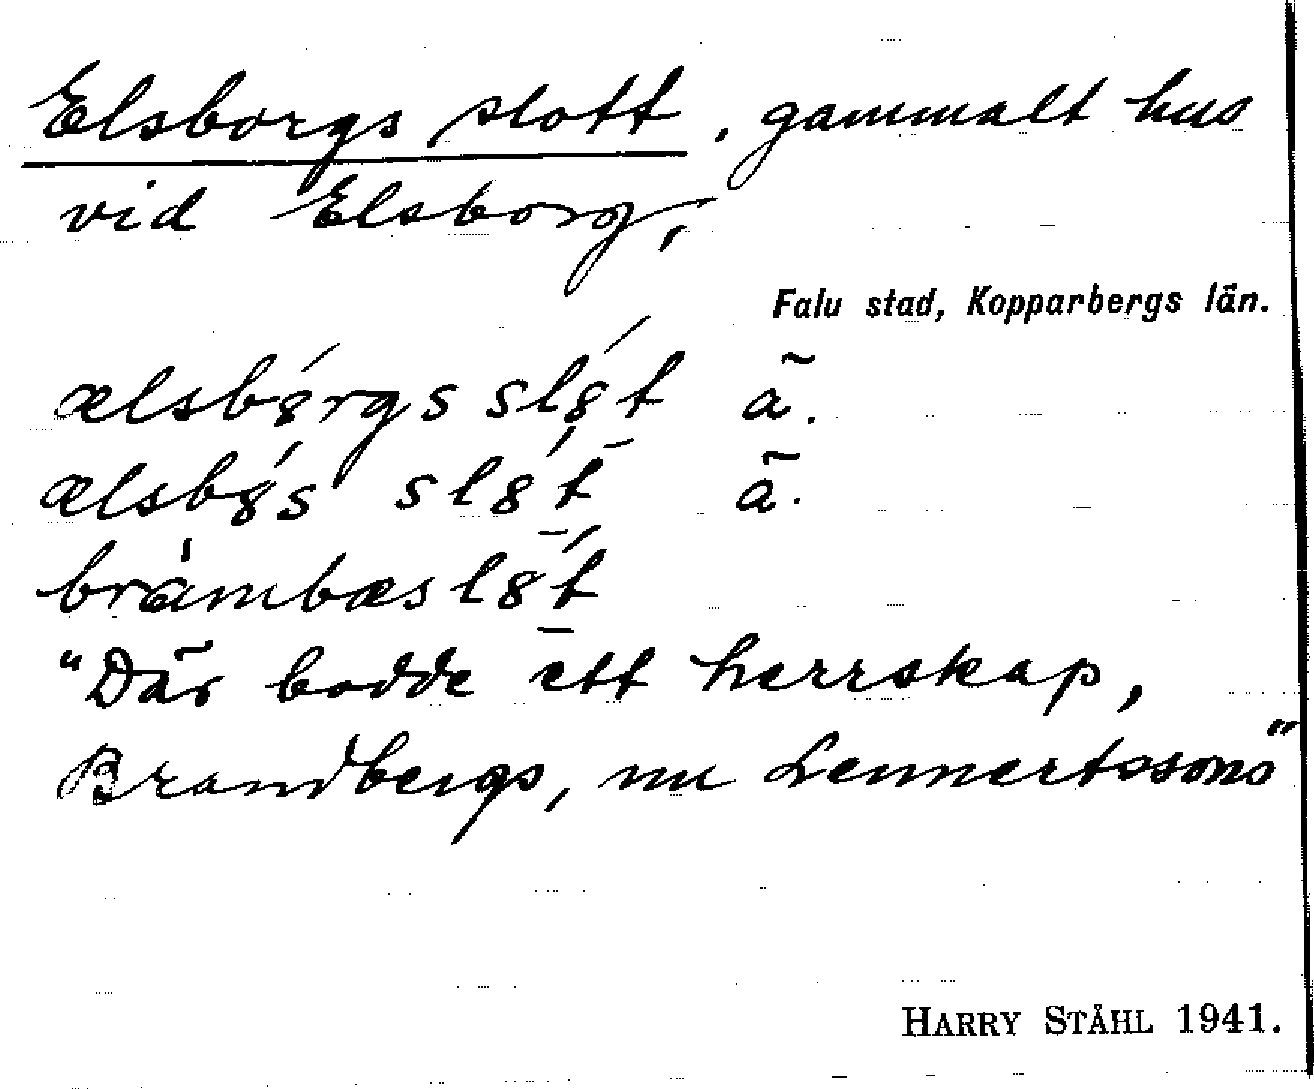 Elsborgs slott, gammalt hus
vid Elsborg,
Falu stad, Kopparbergs län.
ælsbó̤rgs sló̤t ã.
ælsbó̤s slo̤t́ ã.
bràmbæslo̤t́
"Där bodde ett herrskap,
Brandbergs, nu Lennertssons"
HARRY STÅHL 1941.